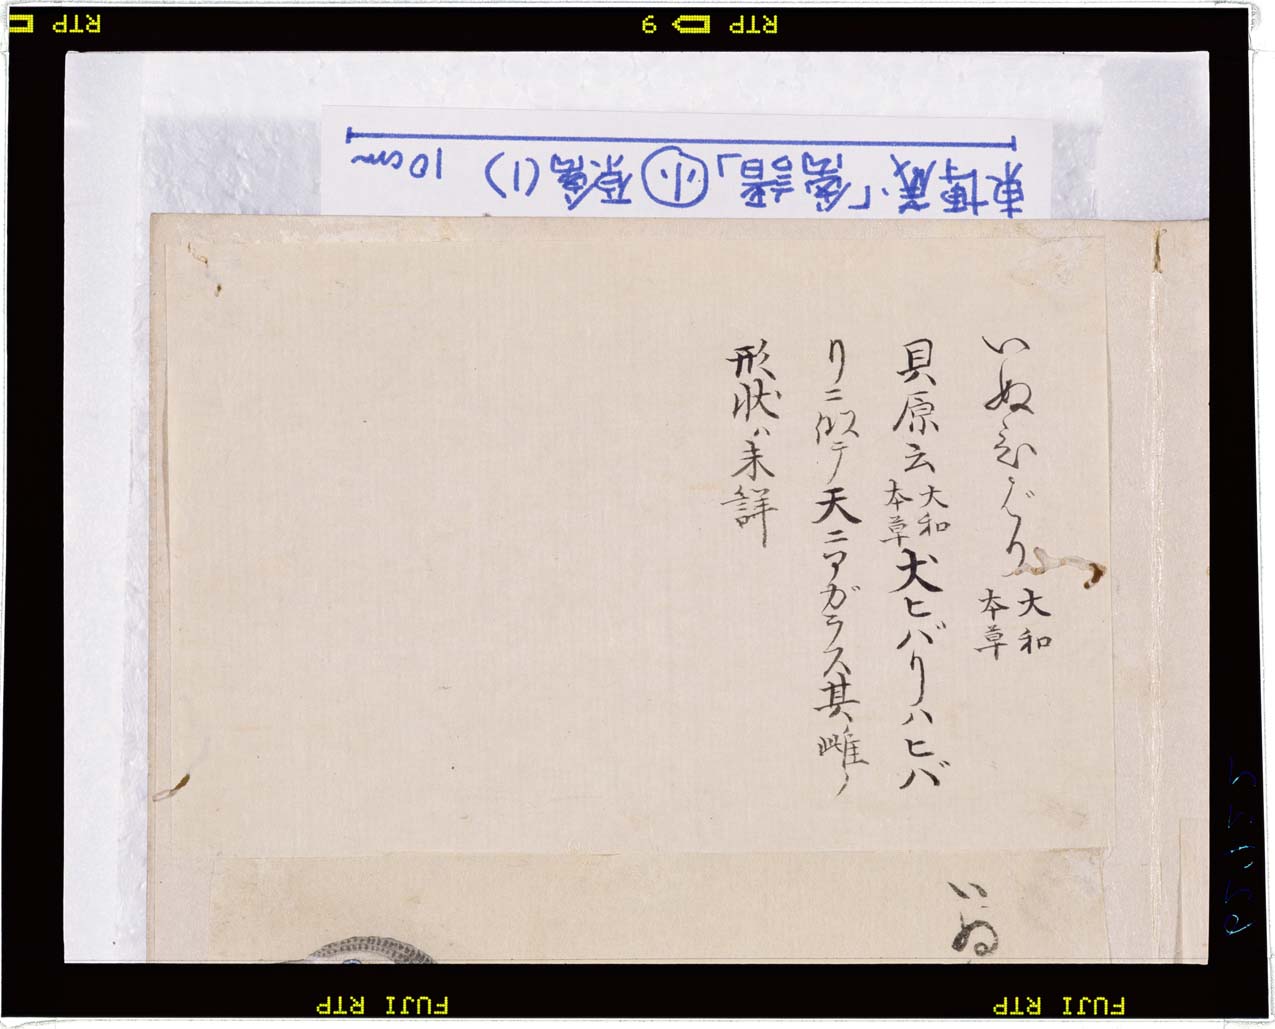 RTP 6 RTP
東博蔵「鳥譜」小 原禽(1) 10cm
いぬひばり 大和本草
貝原云大和本草犬ヒバリハヒバ
リニ似テ天ニアガラス其雌ノ
形状ハ未詳
いぬ
FUJI RTP
FUJI RTP